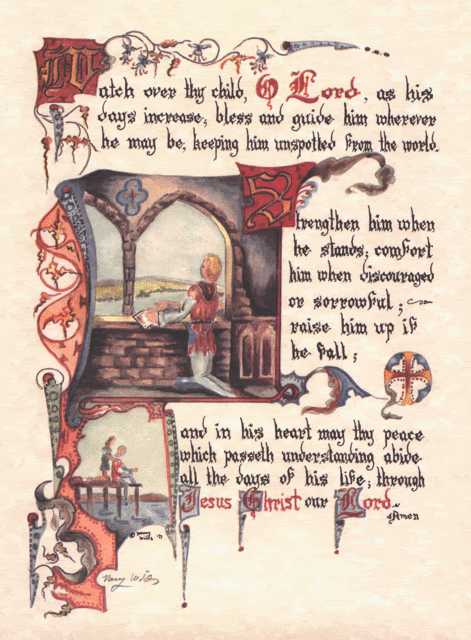 Watch over thy child, O Lord, as his
days increase; bless and guide him wherever
he may be, keeping him unspotted from the world.
Strengthen him when
he stands; comfort
him when discouraged
or sorrowful;
raise him up if
he fall;
and in his heart may thy peace
which passeth understanding abide
all the days of his life; through
Jesus Christ our Lord
Amen
©
Nancy